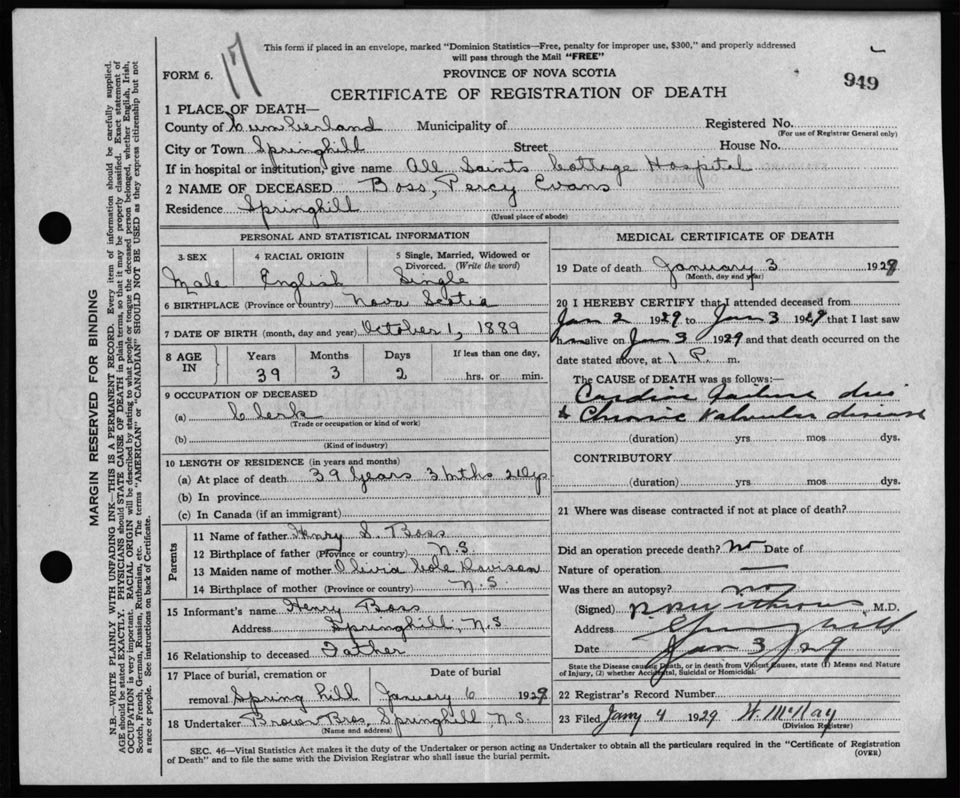 17
This form if placed in an envelope, marked "Dominion Statistics—Free, penalty for improper use, $300," and properly addressed
will pass through the Mail "FREE"
FORM 6.
PROVINCE OF NOVA SCOTIA
949
CERTIFICATE OF REGISTRATION OF DEATH
1 PLACE OF DEATH—
County of Cumberland Municipality of Registered No.
(For use of Registrar General only)
City or Town Springhill Street House No.
If in hospital or institution, give name All Saints Cottage Hospital
2 NAME OF DECEASED Boss, Percy Evans
Residence Springhill
(Usual place of abode)
PERSONAL AND STATISTICAL INFORMATION
3 SEX 4 RACIAL ORIGIN 5 Single, Married, Widowed or
Divorced. (Write the word)
Male English Single
6 BIRTHPLACE (Province or country) Nova Scotia
7 DATE OF BIRTH (month, day and year) October 1, 1889
8 AGE IN Years Months Days If less than one day,
39 3 2 hrs. or min.
9 OCCUPATION OF DECEASED
(a) Clerk
(Trade or occupation or kind of work)
(b)
(Kind of industry)
10 LENGTH OF RESIDENCE (in years and months)
(a) At place of death 39 Years 3 mths 2 dys
(b) In province
(c) In Canada (if an immigrant)
Parents
11 Name of father Henry S. Boss
12 Birthplace of father (Province or country) N.S.
13 Maiden name of mother Olivia Cole Davison
14 Birthplace of mother (Province or country) N.S.
15 Informant's name Henry Boss
Address Springhill, N.S
16 Relationship to deceased Father
17 Place of burial, cremation or Date of burial
removal Spring hill January 6 1929
18 Undertaker Brown Bros, Springhill N.S.
(Name and address)
MEDICAL CERTIFICATE OF DEATH
19 Date of death January 3 1929
(Month, day and year)
20 I HEREBY CERTIFY that I attended deceased from
Jan 2 1929 to Jan 3 1929 that I last saw
him alive on Jan 3 1929 and that death occurred on the
date stated above, at 1 P. m.
The CAUSE of DEATH was as follows:—
Cardiac failure due
to Chronic Valvular disease
(duration) yrs mos dys.
CONTRIBUTORY
(duration) yrs. mos. dys.
21 Where was disease contracted if not at place of death?
Did an operation precede death? no Date of
Nature of operation —
Was there an autopsy? no
(Signed) M.D.
Address Springhill
Date Jan 3/29
State the Disease causing Death, or in death from Violent Causes, state (1) Means and Nature
of Injury, (2) whether Accidental, Suicidal or Homicidal.
22 Registrar's Record Number
23 Filed Jany 4 1929 W. McKay
(Division Registrar)
SEC. 46—Vital Statistics Act makes it the duty of the Undertaker or person acting as Undertaker to obtain all the particulars required in the "Certificate of Registration
of Death" and to file the same with the Division Registrar who shall issue the burial permit.
(OVER)
MARGIN RESERVED FOR BINDING
N.B.—WRITE PLAINLY WITH UNFADING INK—THIS IS A PERMANENT RECORD. Every item of information should be carefully supplied.
AGE should be stated EXACTLY. PHYSICIANS should STATE CAUSE OF DEATH in plain terms, so that it may be properly classified. Exact statement of
OCCUPATION is very important. RACIAL ORIGIN will be described by stating to what people or tongue the deceased person belonged, whether English, Irish,
Scotch, French, German, Russian, Ruthenian, etc. The terms "AMERICAN" or "CANADIAN" SHOULD NOT BE USED as they express citizenship but not
a race or people. See instructions on back of Certificate.